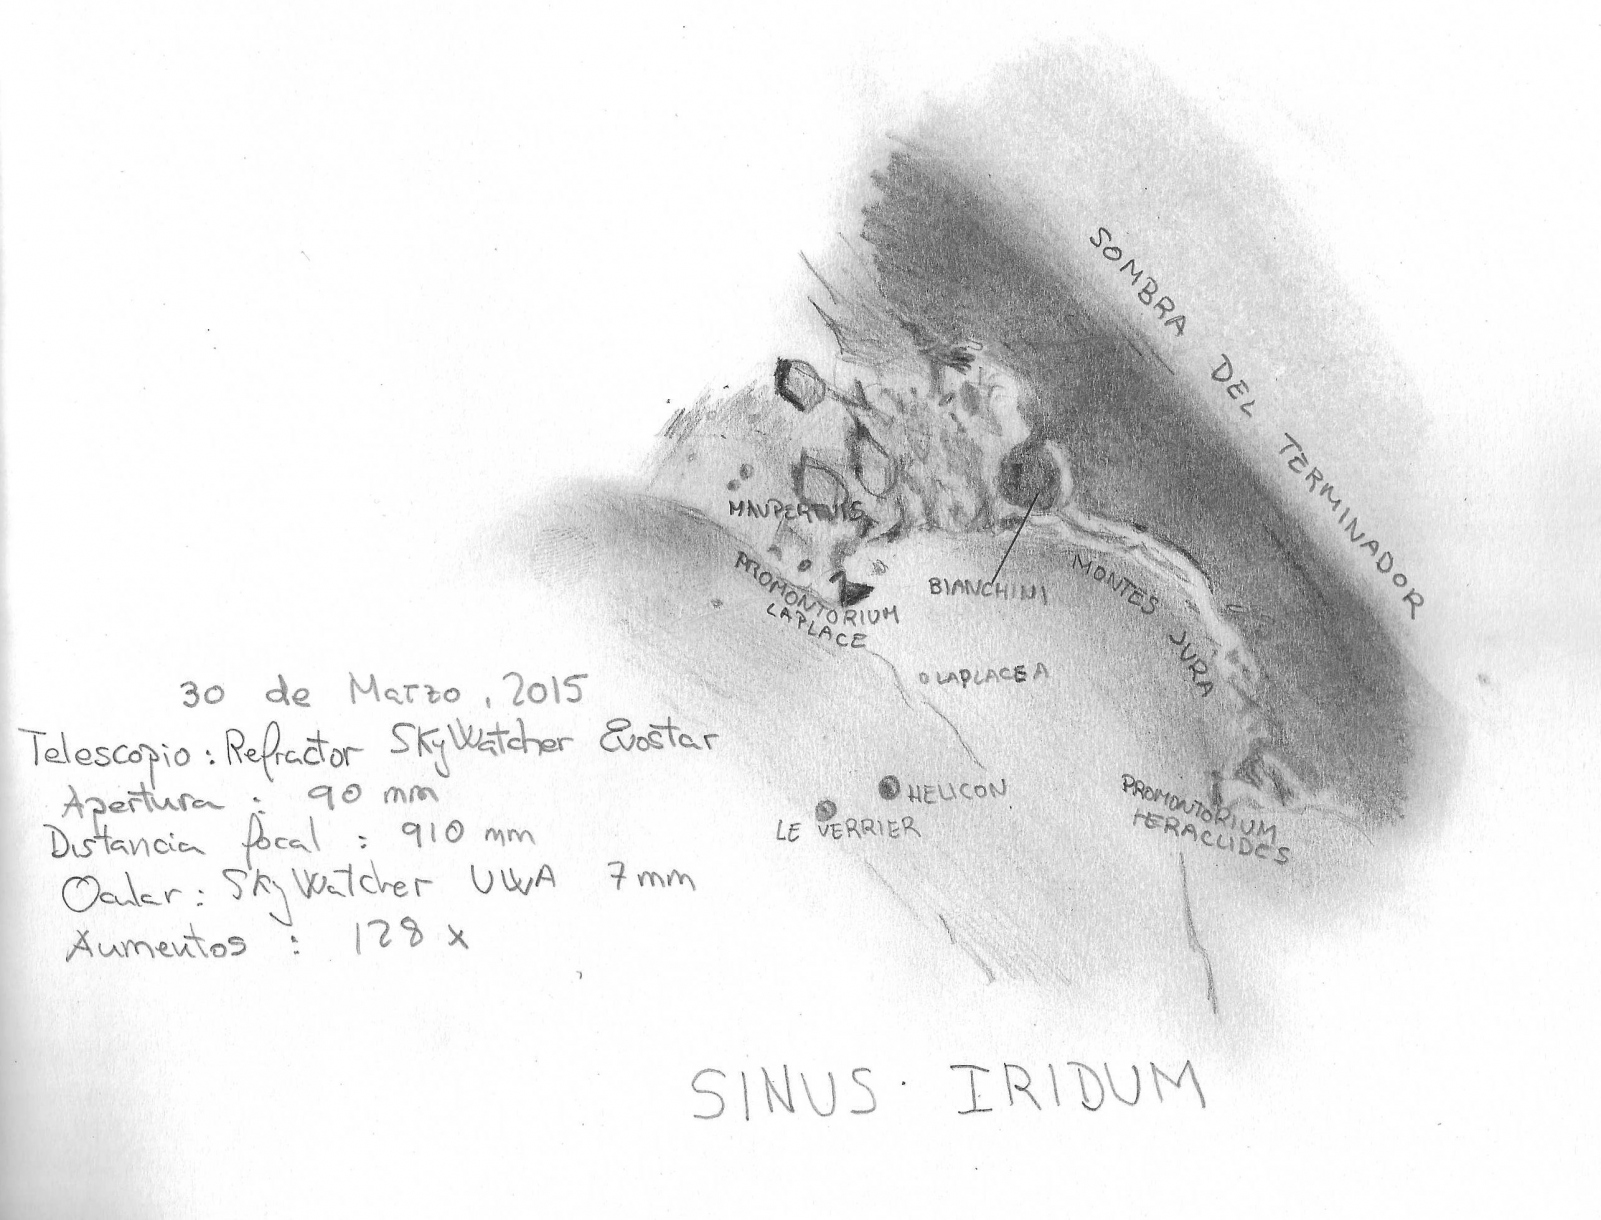 SOMBRA DEL TERMINADOR
MAUPERTUIS
PROMONTORIUM
LAPLACE
BIANCHINI
MONTES JURA
LAPLACE A
HELICON
LE VERRIER
PROMONTORIUM
HERACLIDES
30 de Marzo, 2015
Telescopio: Refractor SkyWatcher Evostar
Apertura : 90 mm
Distancia focal : 910 mm
Ocular: SkyWatcher UWA 7mm
Aumentos : 128 x
SINUS IRIDUM